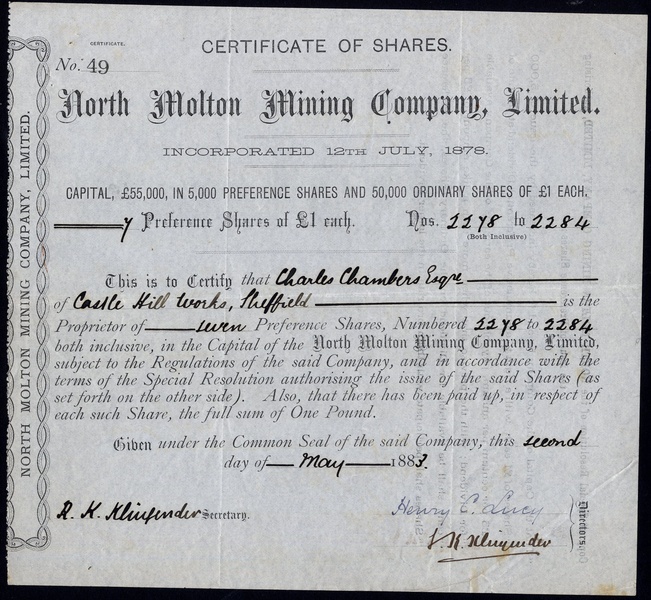 CERTIFICATE.
CERTIFICATE OF SHARES.
No. 49
North Molton Mining Company, Limited.
INCORPORATED 12TH JULY, 1878.
CAPITAL, £55,000, IN 5,000 PREFERENCE SHARES AND 50,000 ORDINARY SHARES OF £1 EACH.
7 Preference Shares of £1 each. Nos. 2278 to 2284
(Both Inclusive)
This is to Certify that Charles Chambers Esqre
of Castle Hill Works, Sheffield is the
Proprietor of seven Preference Shares, Numbered 2278 to 2284
both inclusive, in the Capital of the North Molton Mining Company, Limited,
subject to the Regulations of the said Company, and in accordance with the
terms of the Special Resolution authorising the issue of the said Shares (as
set forth on the other side). Also, that there has been paid up, in respect of
each such Share, the full sum of One Pound.
Given under the Common Seal of the said Company, this second
day of May 1883.
R. K. Klingender Secretary.
Henry C. Lucy
Directors.
Klingender
NORTH MOLTON MINING COMPANY, LIMITED.